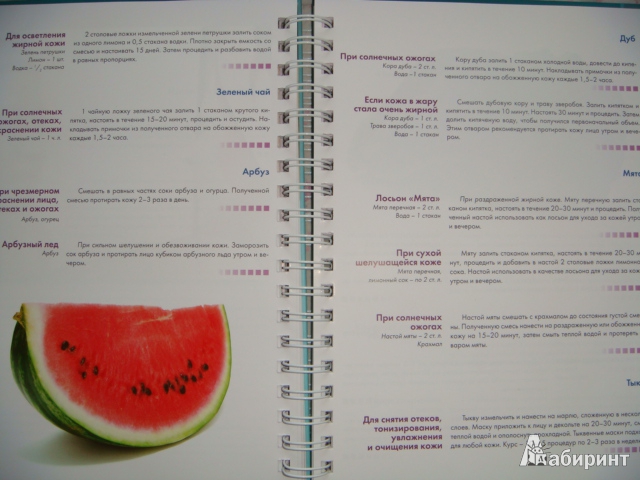 Для осветления
жирной кожи
Зелень петрушки
Лимон – 1 шт.
Водка – ¹/₂ стакана
2 столовые ложки измельченной зелени петрушки залить соком
из одного лимона и 0,5 стакана водки. Плотно закрыть емкость со
смесью и настаивать 15 дней. Затем процедить и разбавить водой
в равных пропорциях.
Зеленый чай
При солнечных
ожогах, отеках,
краснении кожи
Зеленый чай – 1 ч. л.
1 чайную ложку зеленого чая залить 1 стаканом крутого ки-
пятка, настоять в течение 15–20 минут, процедить и остудить. На-
кладывать примочки из полученного отвара на обожженную кожу
каждые 1,5–2 часа.
Арбуз
ри чрезмерном
раснении лица,
теках и ожогах
Арбуз, огурец
Смешать в равных частях соки арбуза и огурца. Полученной
смесью протирать кожу 2–3 раза в день.
Арбузный лед
Арбуз
При сильном шелушении и обезвоживании кожи. Заморозить
сок арбуза и протирать лицо кубиком арбузного льда утром и ве-
чером.
Дуб
При солнечных ожогах
Кора дуба – 2 ст. л.
Вода – 1 стакан
Кору дуба залить 1 стаканом холодной воды, довести до кипе-
ния и кипятить в течение 10 минут. Накладывать примочки из полу-
ченного отвара на обожженную кожу каждые 1,5–2 часа.
Если кожа в жару
стала очень жирной
Кора дуба – 1 ст. л.
Трава зверобоя – 1 ст. л.
Вода – 1 стакан
Смешать дубовую кору и траву зверобоя. Залить кипятком и
кипятить в течение 10 минут. Настоять 30 минут и процедить. Затем
долить кипяченую воду, чтобы получился первоначальный объем.
Этим отваром рекомендуется протирать кожу лица утром и вече-
ром.
Мята
Лосьон «Мята»
Мята перечная – 2 ст. л.
Вода – 1 стакан
При раздраженной жирной коже. Мяту перечную залить ста-
каном кипятка, настоять в течение 20–30 минут и процедить. Полу-
ченный настой использовать как лосьон для ухода за кожей утром
и вечером.
При сухой
шелушащейся коже
Мята перечная,
лимонный сок – по 2 ст. л.
Мяту залить стаканом кипятка, настоять в течение 20–30 ми-
нут, процедить и добавить в настой 2 столовые ложки лимонного
сока. Настой использовать в качестве лосьона для ухода за кожей
утром и вечером.
При солнечных
ожогах
Настой мяты – 2 ст. л.
Крахмал
Настой мяты смешать с крахмалом до состояния густой смета-
ны. Полученную смесь нанести на раздраженную или обожженную
кожу на 15–20 минут, затем смыть теплой водой и протереть от-
варом мяты.
Тык
Для снятия отеков,
тонизирования,
увлажнения
и очищения кожи
Тыкву измельчить и нанести на марлю, сложенную в неско
слоев. Маску приложить к лицу и декольте на 20–30 минут, см
теплой водой и ополоснуть прохладной. Тыквенные маски подх
для любой кожи. Курс – процедур по 2–3 раза в неде
Лабиринт